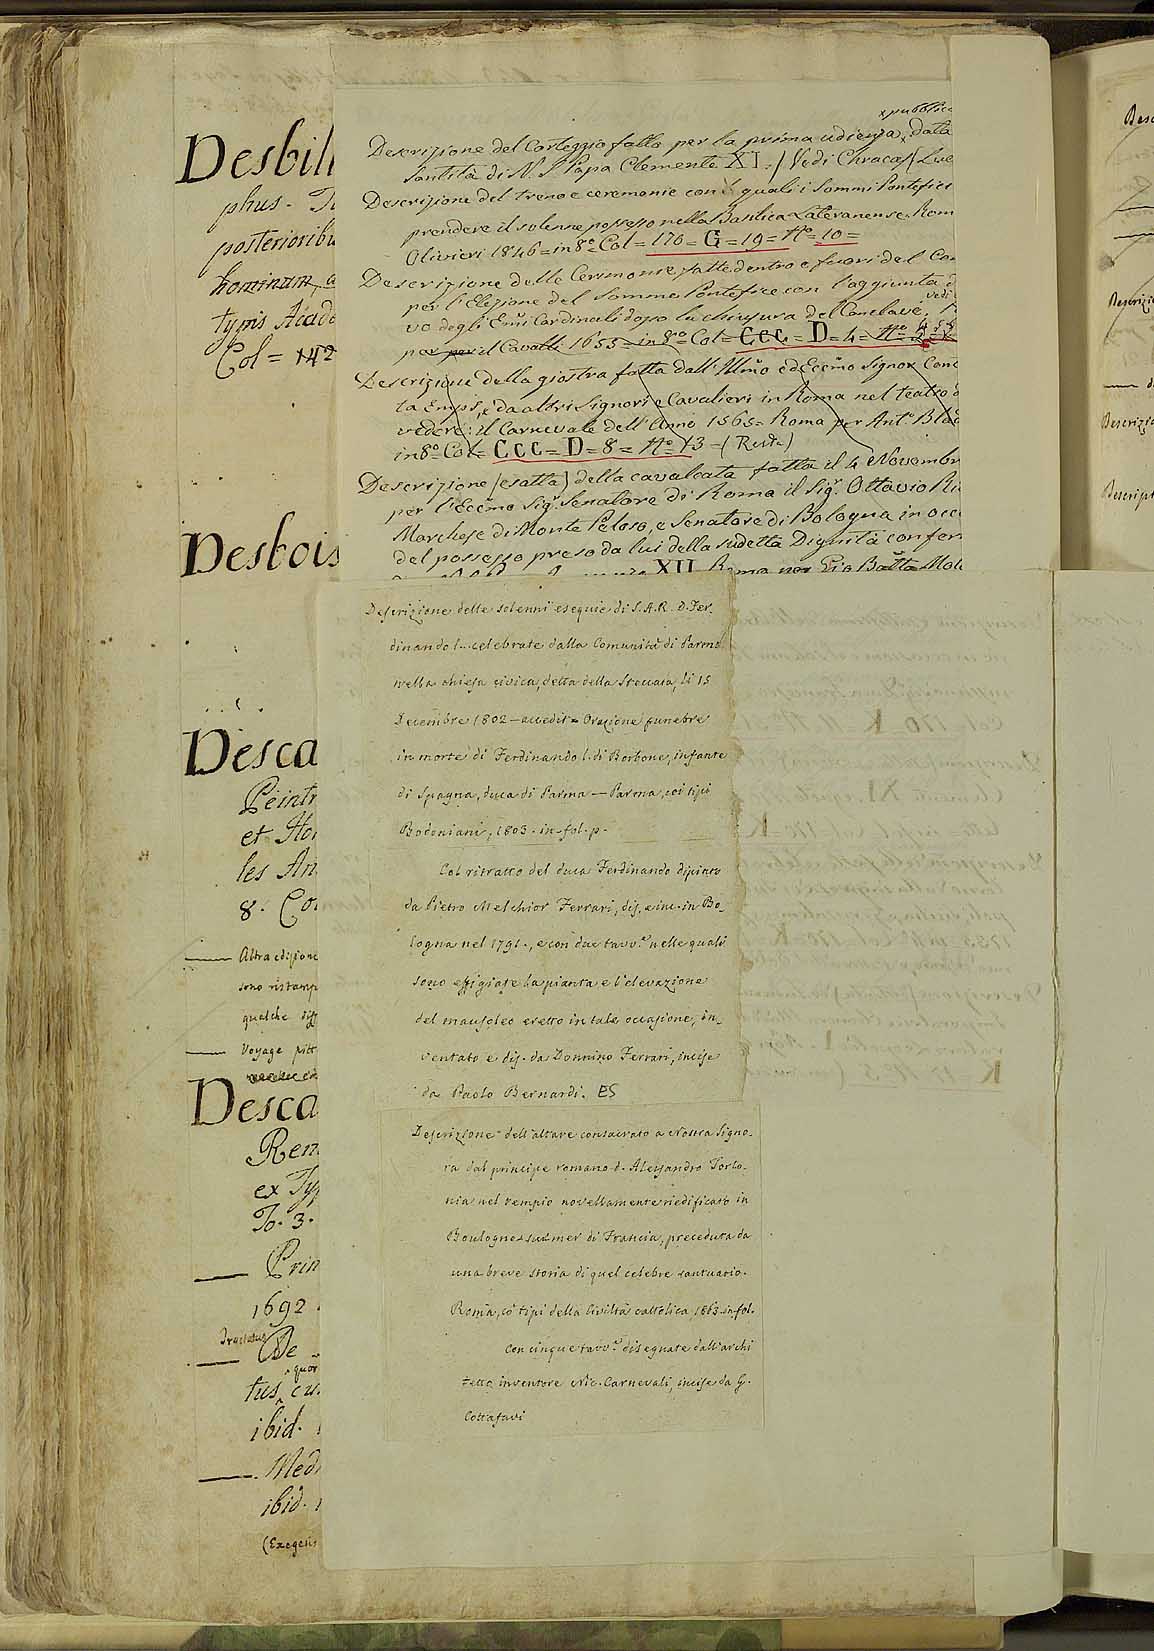 Desbill
phus. T
posterioribu
hominum,
typis Acad
Col = 142
Desbois
Desca
Peintr
et Ho
les An
8. Co
Altra edizione
sono ristamp
qualche diff
Voyage pitt
Desca
Rem
ex Typ
To. 3.
Prin
1692
Tractatus
De
quor
tus, cu
ibid.
Med
ibid.
(Exegesis
pubblica
Descrizione del Corteggio fatto per la prima udienza, data
Santità di N. S. Papa Clemente XI. / Vedi Chracas / Lue
Descrizione del treno e ceremonie con i quali i Sommi Pontefici
prendere il solenne possesso nella Basilica Lateranense Rom
Olivieri 1846 = in 8.º Col = 176 = G = 19 = Nº 10 =
Descrizione delle Cerimonie fatte dentro e fuori del Con
per l'Elezione del Sommo Pontefice con l'aggiunta d
vo degl'Emi Cardinali dopo la chiusura del Conclave. vedi
per il Cavalli 1655 = in 8.º Col = CCC = D = 4 = Nº
Descrizione della giostra fatta dall'Illmo ed Eccmo Signor Con
ta Emps, e da altri Signori e Cavalieri in Roma nel teatro d
vedere: il Carnevale dell'Anno 1565 = Roma per Ant.º Blad
in 8.º Col = CCC = D = 8 = Nº 13 - (Resta)
Descrizione (esatta) della cavalcata fatta il 4 Novembr
per l'Eccmo Sig.r Senatore di Roma il Sig.r Ottavio Ri
Marchese di Monte Peloso, e Senatore di Bologna in occ
del possesso preso da lui della sudetta Dignità confer
XII Roma per Gio Batta Mol
Descrizione delle solenni esequie di S. A. R. D. Fer-
dinando I. celebrate dalla Comunità di Parma
nella chiesa civica, detta della Steccata, li 15
Decembre 1802 — accedit = Orazione funebre
in morte di Ferdinando I. di Borbone, infante
di Spagna, duca di Parma — Parma, coi tipi
Bodoniani, 1803. in-fol. p.
Col ritratto del duca Ferdinando dipinto
da Pietro Melchior Ferrari, dis. e inc. in Bo-
logna nel 1791., e con due tavv.e nelle quali
sono effigiate la pianta e l'elevazione
del mausoleo eretto in tale occasione, in-
ventato e dis. da Donnino Ferrari, incise
da Paolo Bernardi. ES
Descrizione dell'altare consacrato a Nostra Signo-
ra dal principe romano d. Alessandro Torlo-
nia nel tempio novellamente riedificato in
Boulogne-sur-mer di Francia, preceduta da
una breve storia di quel celebre santuario.
Roma, co' tipi della Civiltà cattolica, 1863. in-fol.
Con cinque tavv.e disegnate dall'archi
tetto inventore Nic. Carnevali, incise da G.
Cottafavi
Desc
Descrizio
Descrizio
Descript